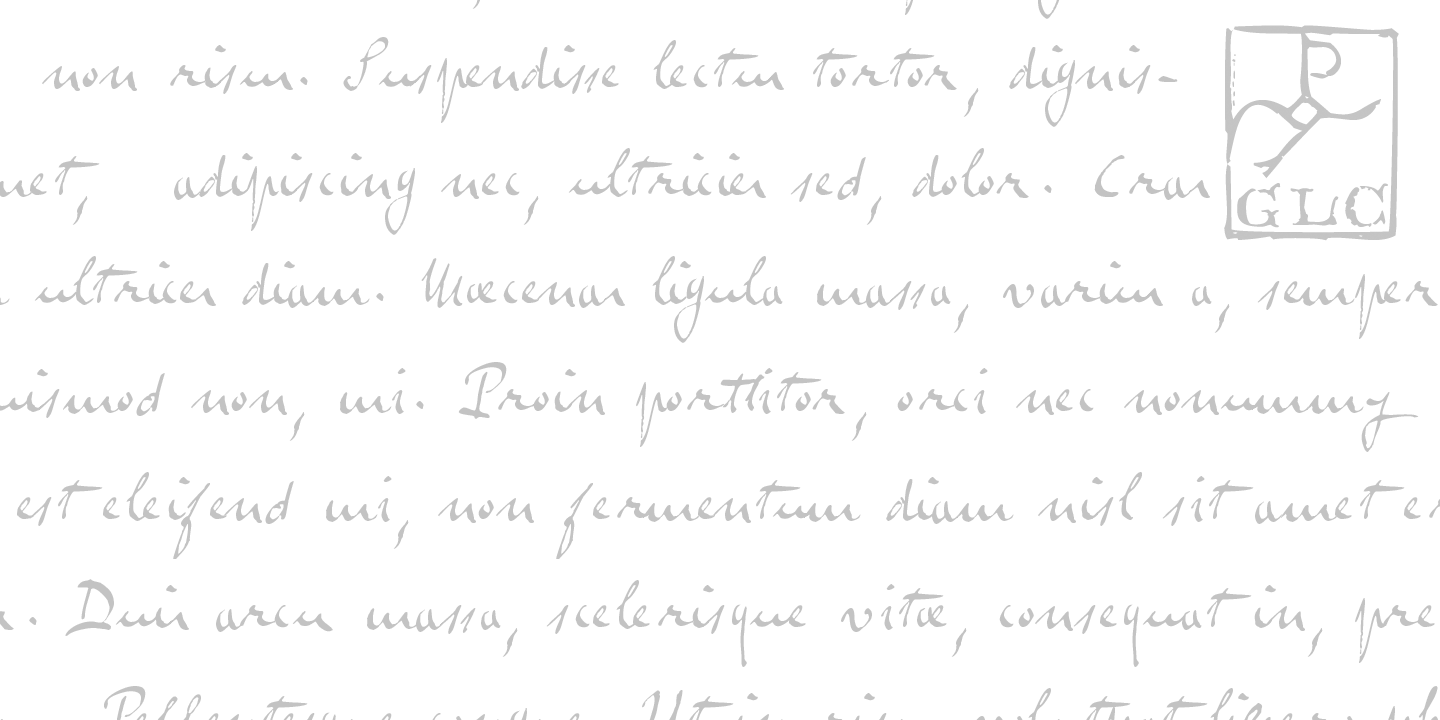 non risus. Suspendisse lectus tortor, dignis-
P
GLC
adipiscing nec, ultricies sed, dolor. Cras
ultrices diam. Maecenas ligula massa, varius a, semper
non, mi. Proin porttitor, orci nec nonummy
est eleifend mi, non fermentum diam nisl sit amet
Duis arcu massa, scelerisque vitæ, consequat in, pre
Pellentesque congue. Ut in